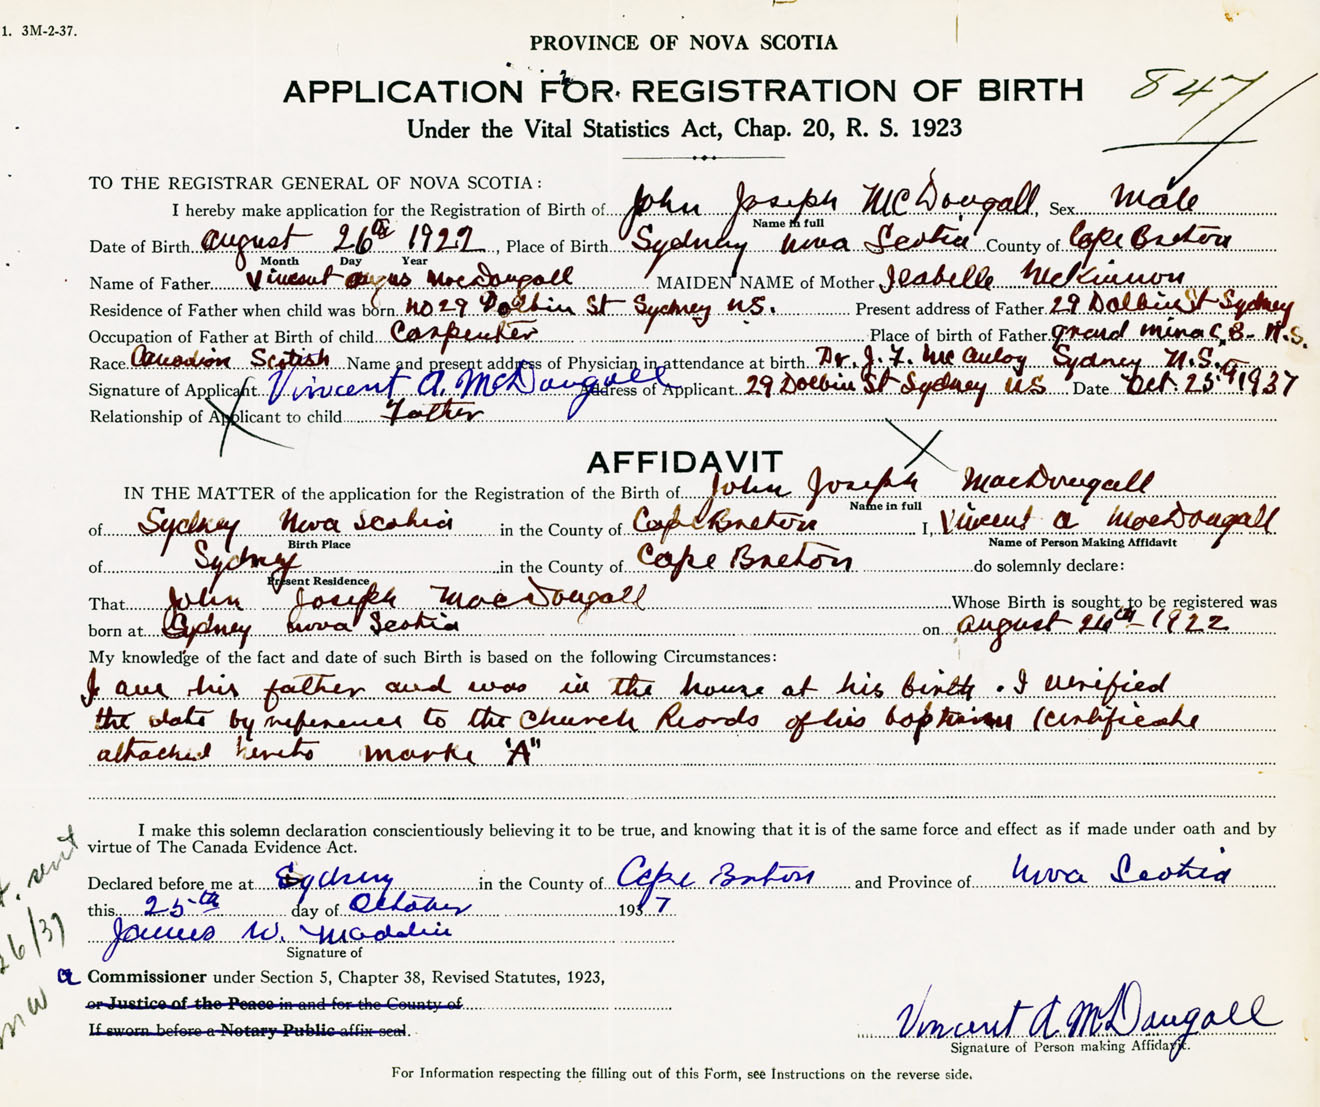 1. 3M-2-37.
PROVINCE OF NOVA SCOTIA
APPLICATION FOR REGISTRATION OF BIRTH
847
Under the Vital Statistics Act, Chap. 20, R. S. 1923
TO THE REGISTRAR GENERAL OF NOVA SCOTIA:
I hereby make application for the Registration of Birth of John Joseph McDougall, Sex Male
Name in full
Date of Birth August 26th 1922, Place of Birth Sydney Nova Scotia County of Cape Breton
Month Day Year
Name of Father Vincent Angus MacDougall MAIDEN NAME of Mother Isabelle McKinnon
Residence of Father when child was born No 29 Dolbin St Sydney N.S. Present address of Father 29 Dolbin St Sydney
Occupation of Father at Birth of child Carpenter Place of birth of Father Grand Mira C.B. N.S.
Race Canadian Scotish Name and present address of Physician in attendance at birth Dr. J. F. McAulay Sydney N.S.
Signature of Applicant Vincent A. McDougall Address of Applicant 29 Dolbin St Sydney NS Date Oct. 25th 1937
Relationship of Applicant to child Father
AFFIDAVIT
IN THE MATTER of the application for the Registration of the Birth of John Joseph MacDougall
Name in full
of Sydney Nova Scotia in the County of Cape Breton I, Vincent A MacDougall
Birth Place Name of Person Making Affidavit
of Sydney in the County of Cape Breton do solemnly declare:
Present Residence
That John Joseph MacDougall Whose Birth is sought to be registered was
born at Sydney Nova Scotia on August 26th 1922
My knowledge of the fact and date of such Birth is based on the following Circumstances:
I am his father and was in the house at his birth. I verified
the date by reference to the Church Records of his baptism (certificate
attached hereto marke "A"
I make this solemn declaration conscientiously believing it to be true, and knowing that it is of the same force and effect as if made under oath and by
virtue of The Canada Evidence Act.
Declared before me at Sydney in the County of Cape Breton and Province of Nova Scotia
this 25th day of October 1937
James W. Maddin
Signature of
a Commissioner under Section 5, Chapter 38, Revised Statutes, 1923,
or Justice of the Peace in and for the County of
If sworn before a Notary Public affix seal.
Vincent A. McDougall
Signature of Person making Affidavit.
For Information respecting the filling out of this Form, see Instructions on the reverse side.
sent
26/37